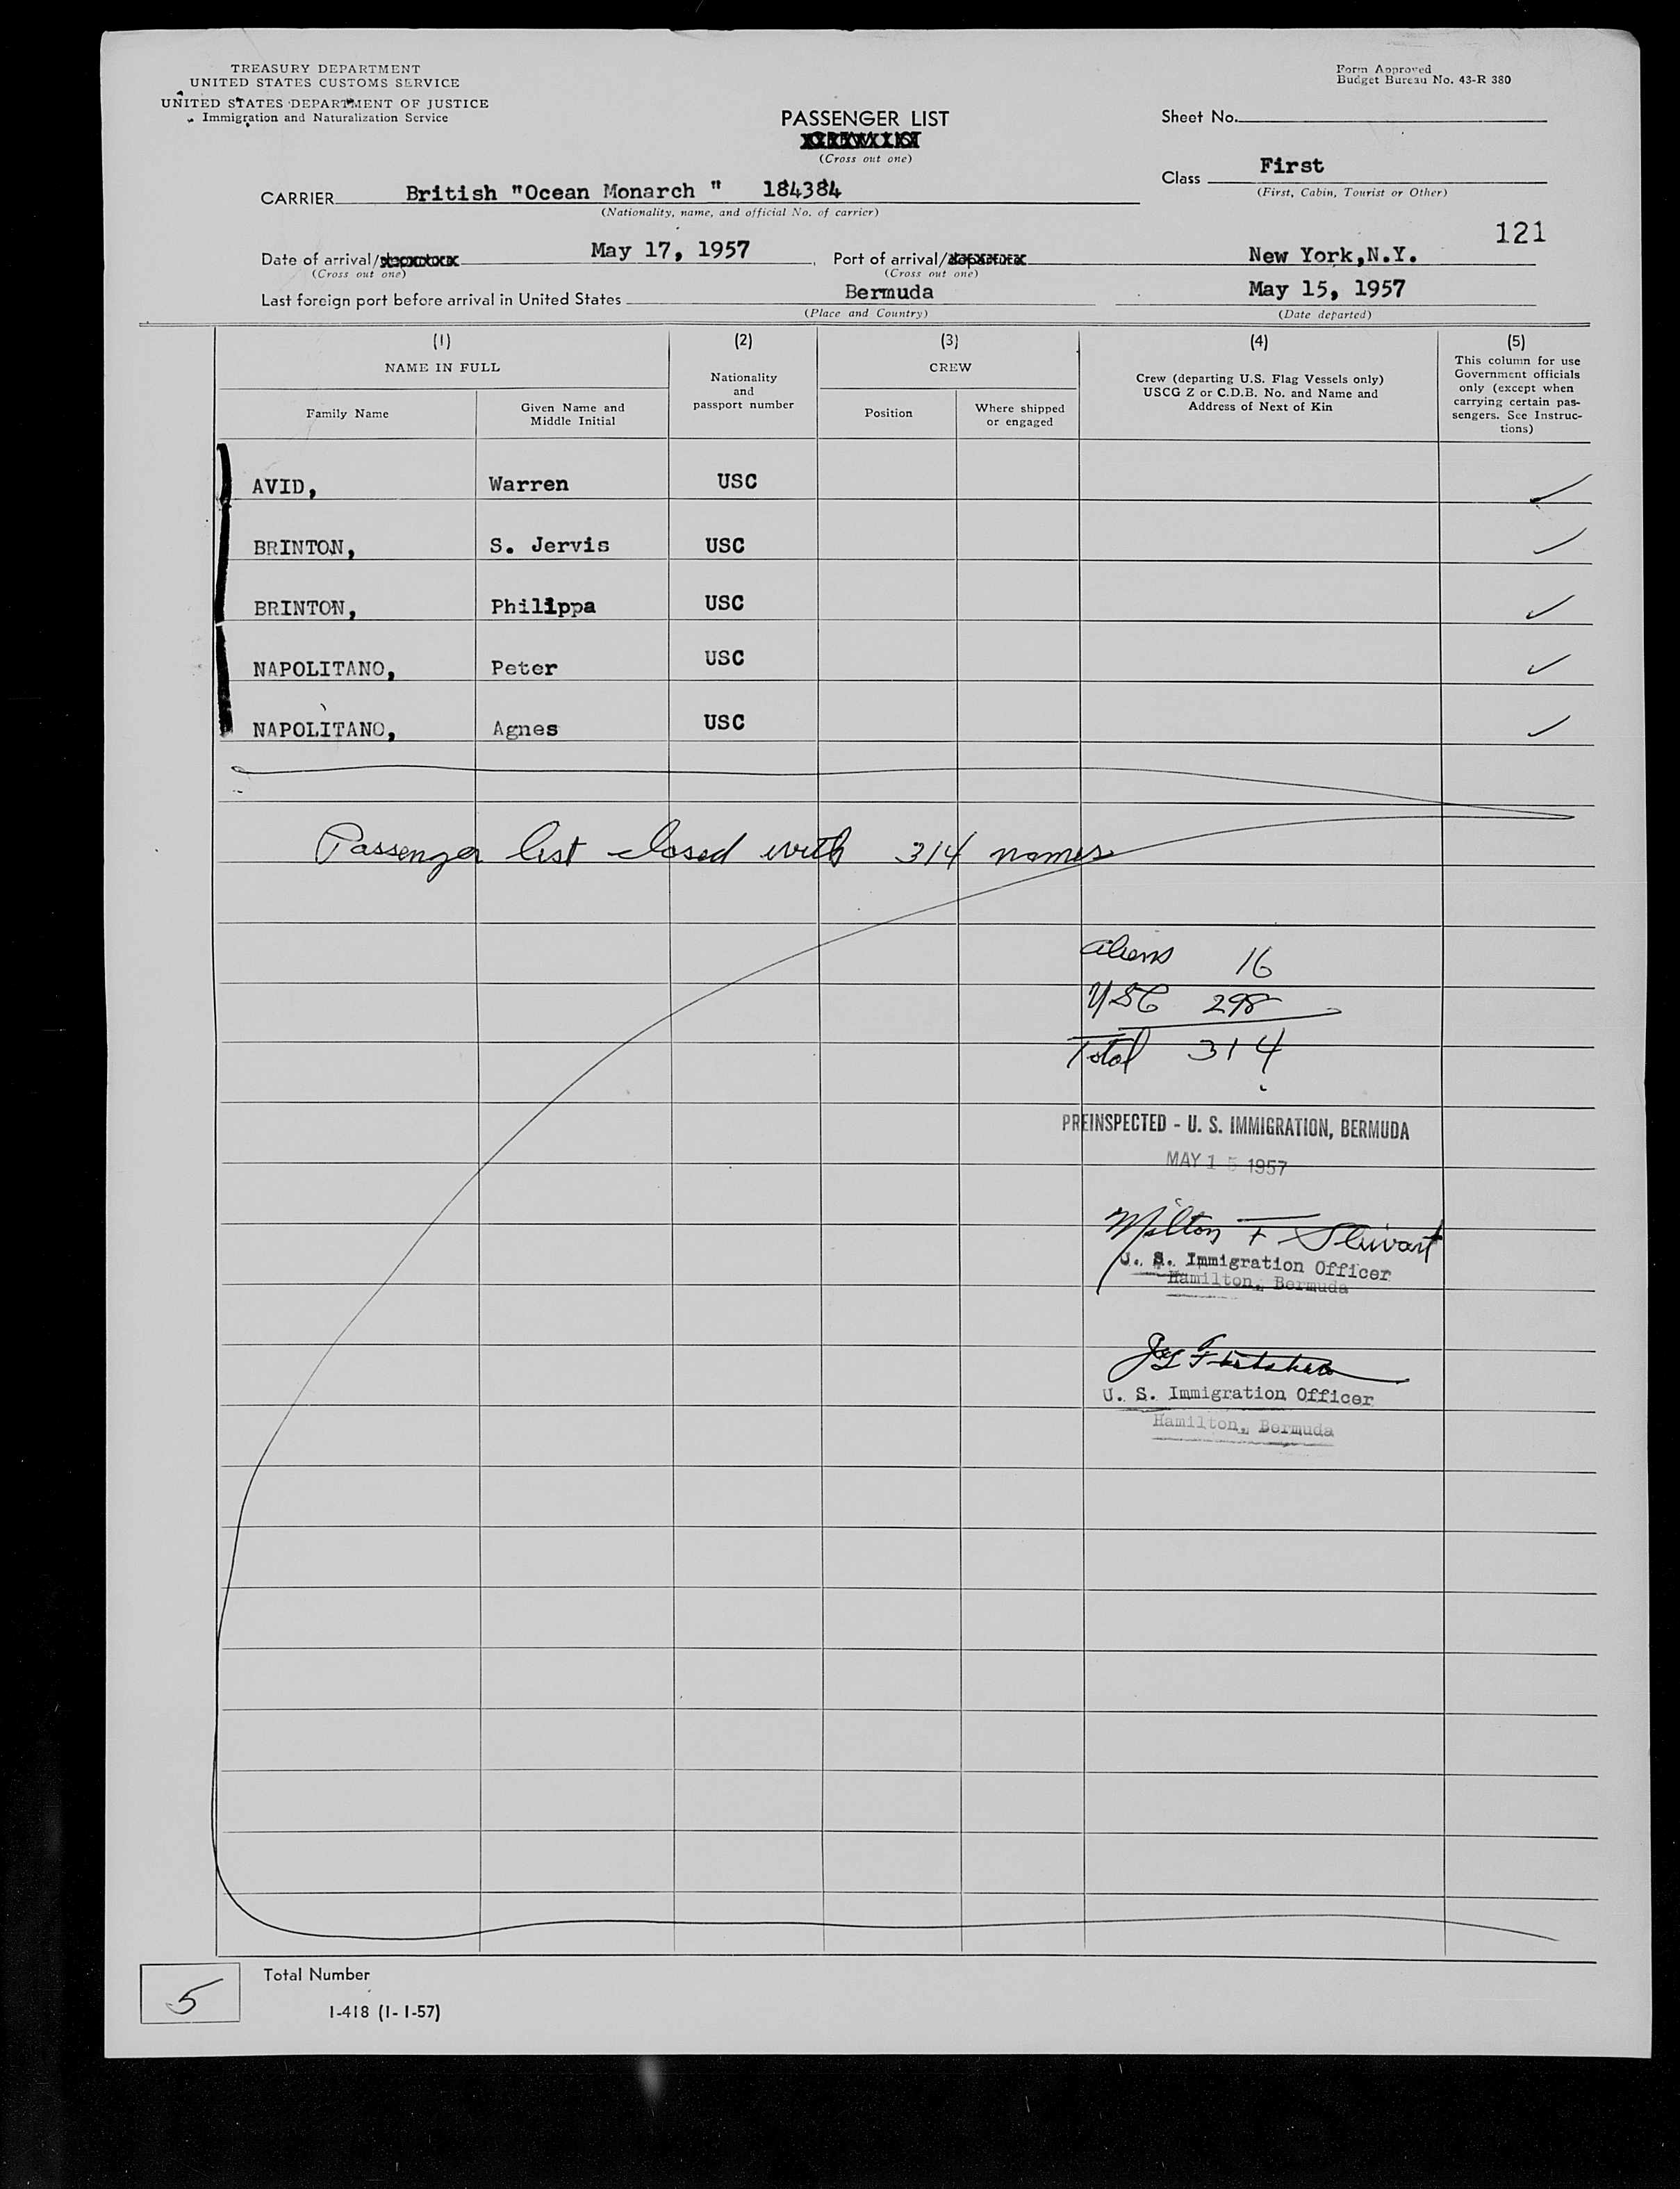 TREASURY DEPARTMENT
UNITED STATES CUSTOMS SERVICE
UNITED STATES DEPARTMENT OF JUSTICE
Immigration and Naturalization Service
Form Approved
Budget Bureau No. 43-R 380
PASSENGER LIST
CREW LIST
(Cross out one)
Sheet No.
Class First
(First, Cabin, Tourist or Other)
CARRIER British "Ocean Monarch " 184384
(Nationality, name, and official No. of carrier)
121
Date of arrival/departure May 17, 1957 Port of arrival/departure New York,N.Y.
(Cross out one) (Cross out one)
Last foreign port before arrival in United States Bermuda May 15, 1957
(Place and Country) (Date departed)
(1) (2) (3) (4) (5)
NAME IN FULL
Family Name
Given Name and
Middle Initial
Nationality
and
passport number
CREW
Position
Where shipped
or engaged
Crew (departing U.S. Flag Vessels only)
USCG Z or C.D.B. No. and Name and
Address of Next of Kin
This column for use
Government officials
only (except when
carrying certain pas-
sengers. See Instruc-
tions)
AVID, Warren USC
BRINTON, S. Jervis USC
BRINTON, Philippa USC
NAPOLITANO, Peter USC
NAPOLITANO, Agnes USC
Passenger list closed with 314 names
Aliens 16
USC 298
Total 314
PREINSPECTED - U. S. IMMIGRATION, BERMUDA
MAY 15 1957
Milton F Stewart
U. S. Immigration Officer
Hamilton, Bermuda
U. S. Immigration Officer
Hamilton, Bermuda
5
Total Number
I-418 (1-1-57)